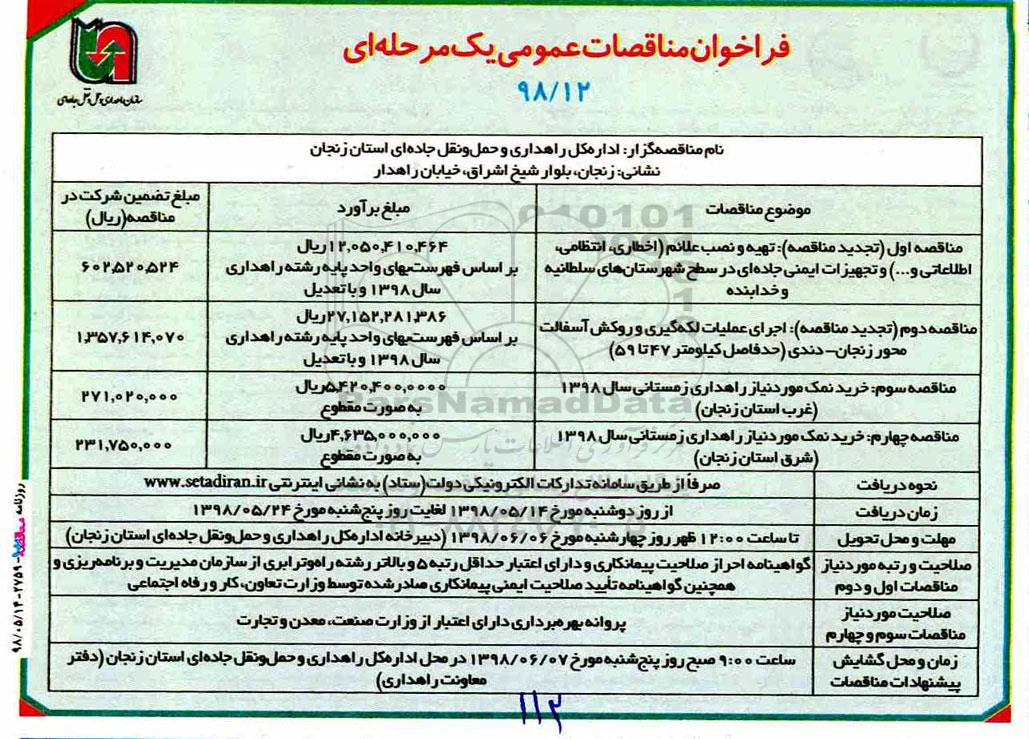 فراخوان مناقصات عمومی یک مرحله‌ای
۹۸/۱۲
سازمان راهداری و حمل و نقل جاده‌ای
نام مناقصه‌گزار: اداره‌کل راهداری و حمل‌ونقل جاده‌ای استان زنجان
نشانی: زنجان، بلوار شیخ اشراق، خیابان راهدار
موضوع مناقصات
مبلغ برآورد
مبلغ تضمین شرکت در
مناقصه(ریال)
مناقصه اول (تجدید مناقصه): تهیه و نصب علائم (اخطاری، انتظامی،
اطلاعاتی و...) و تجهیزات ایمنی جاده‌ای در سطح شهرستان‌های سلطانیه
و خدابنده
۱۲,۰۵۰,۴۱۰,۴۶۴ریال
بر اساس فهرست‌بهای واحد پایه رشته راهداری
سال ۱۳۹۸ و با تعدیل
۶۰۲,۵۲۰,۵۲۴
مناقصه دوم (تجدید مناقصه): اجرای عملیات لکه‌گیری و روکش آسفالت
محور زنجان– دندی (حدفاصل کیلومتر ۴۷ تا ۵۹)
۲۷,۱۵۲,۲۸۱,۳۸۶ریال
بر اساس فهرست‌بهای واحد پایه رشته راهداری
سال ۱۳۹۸ و با تعدیل
۱,۳۵۷,۶۱۴,۰۷۰
مناقصه سوم: خرید نمک موردنیاز راهداری زمستانی سال ۱۳۹۸
(غرب استان زنجان)
۵,۴۲۰,۴۰۰,۰۰۰۰ریال
به صورت مقطوع
۲۷۱,۰۲۰,۰۰۰
مناقصه چهارم: خرید نمک موردنیاز راهداری زمستانی سال ۱۳۹۸
(شرق استان زنجان)
۴,۶۳۵,۰۰۰,۰۰۰ریال
به صورت مقطوع
۲۳۱,۷۵۰,۰۰۰
نحوه دریافت
صرفا از طریق سامانه تدارکات الکترونیکی دولت(ستاد) به نشانی اینترنتی www.setadiran.ir
زمان دریافت
از روز دوشنبه مورخ ۱۳۹۸/۰۵/۱۴ لغایت روز پنج‌شنبه مورخ ۱۳۹۸/۰۵/۲۴
مهلت و محل تحویل
تا ساعت ۱۲:۰۰ ظهر روز چهارشنبه مورخ ۱۳۹۸/۰۶/۰۶ (دبیرخانه اداره‌کل راهداری و حمل‌ونقل جاده‌ای استان زنجان)
صلاحیت و رتبه موردنیاز
مناقصات اول و دوم
گواهینامه احراز صلاحیت پیمانکاری و دارای اعتبار حداقل رتبه ۵ و بالاتر رشته راه‌وترابری از سازمان مدیریت و برنامه‌ریزی و
همچنین گواهینامه تأیید صلاحیت ایمنی پیمانکاری صادرشده توسط وزارت تعاون، کار و رفاه اجتماعی
صلاحیت موردنیاز
مناقصات سوم و چهارم
پروانه بهره‌برداری دارای اعتبار از وزارت صنعت، معدن و تجارت
زمان و محل گشایش
پیشنهادات مناقصات
ساعت ۹:۰۰ صبح روز پنج‌شنبه مورخ ۱۳۹۸/۰۶/۰۷ در محل اداره‌کل راهداری و حمل‌ونقل جاده‌ای استان زنجان (دفتر
معاونت راهداری)
۱۱۳
روزنامه مناقصه ۲۷۵۹-۹۸/۰۵/۱۴
ParsNamadData